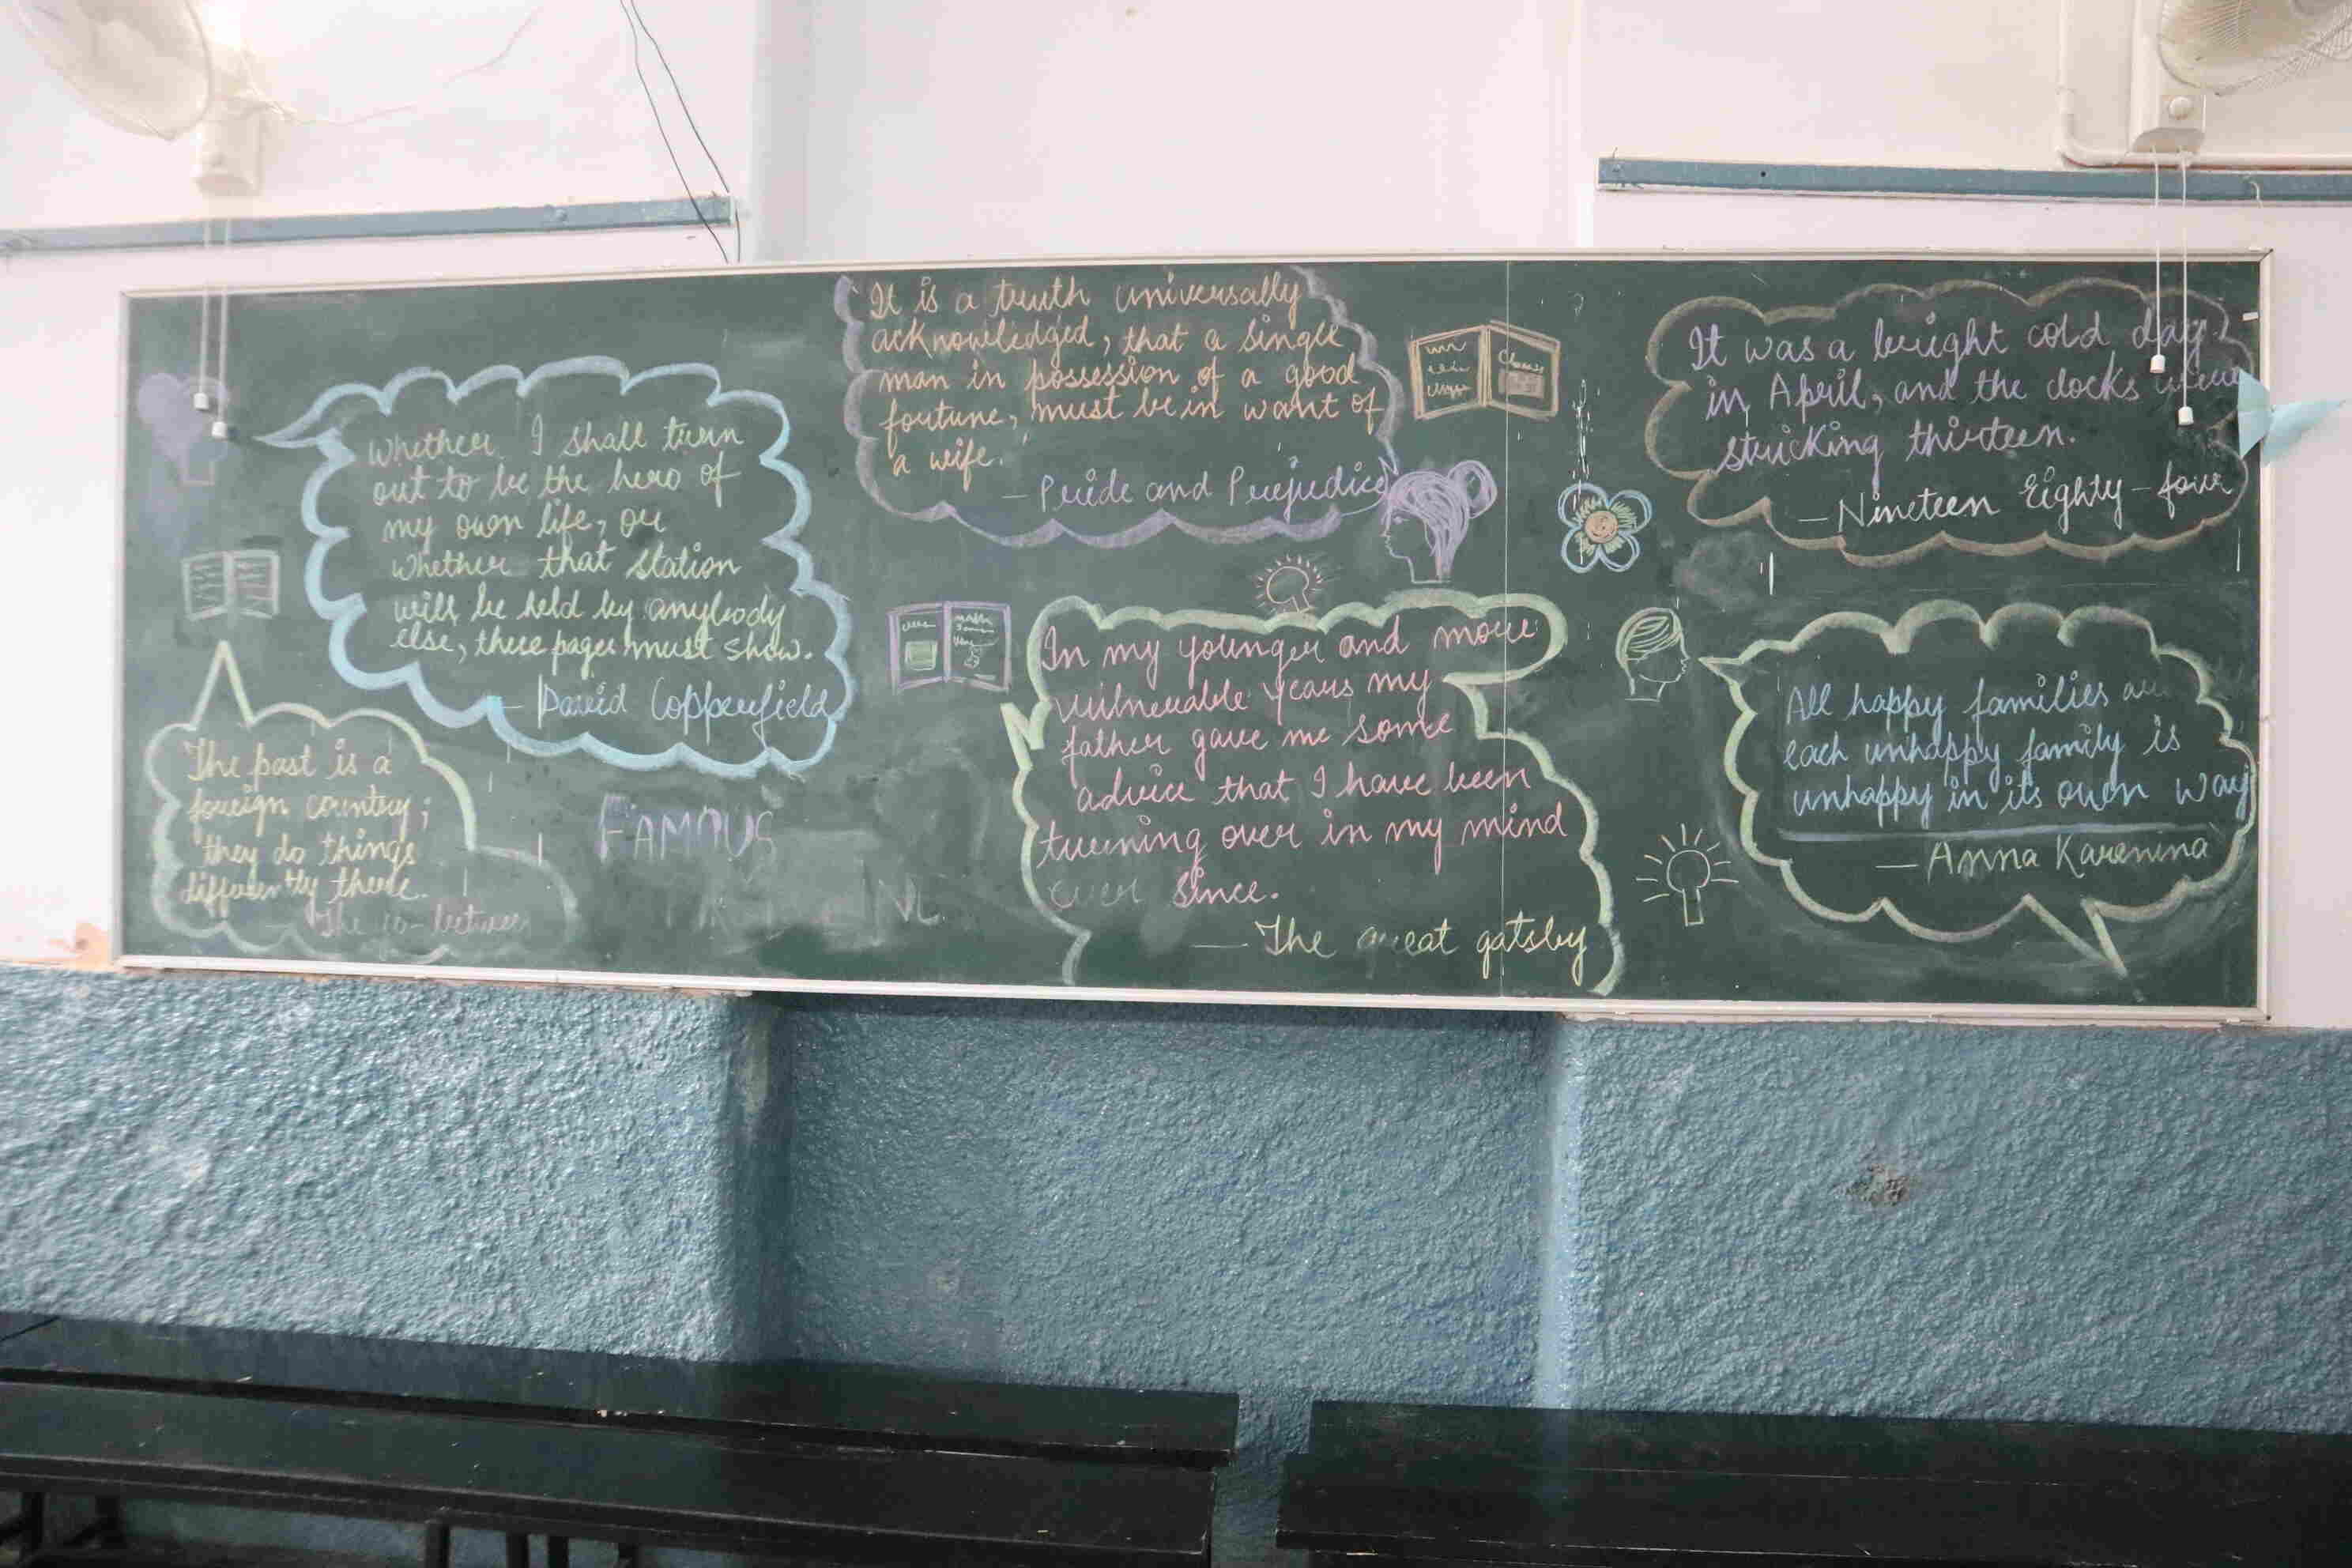 Whether I shall turn
out to be the hero of
my own life, or
whether that station
will be held by anybody
else, these pages must show.
- David Copperfield
The past is a
foreign country;
they do things
differently there.
- The Go-between
FAMOUS
It is a truth universally
acknowledged, that a single
man in possession of a good
fortune, must be in want of
a wife.
- Pride and Prejudice
In my younger and more
vulnerable years my
father gave me some
advice that I have been
turning over in my mind
ever since.
- The great gatsby
It was a bright cold day
in April, and the clocks were
stricking thirteen.
- Nineteen Eighty-four
All happy families
each unhappy family is
unhappy in its own way
- Anna Karenina